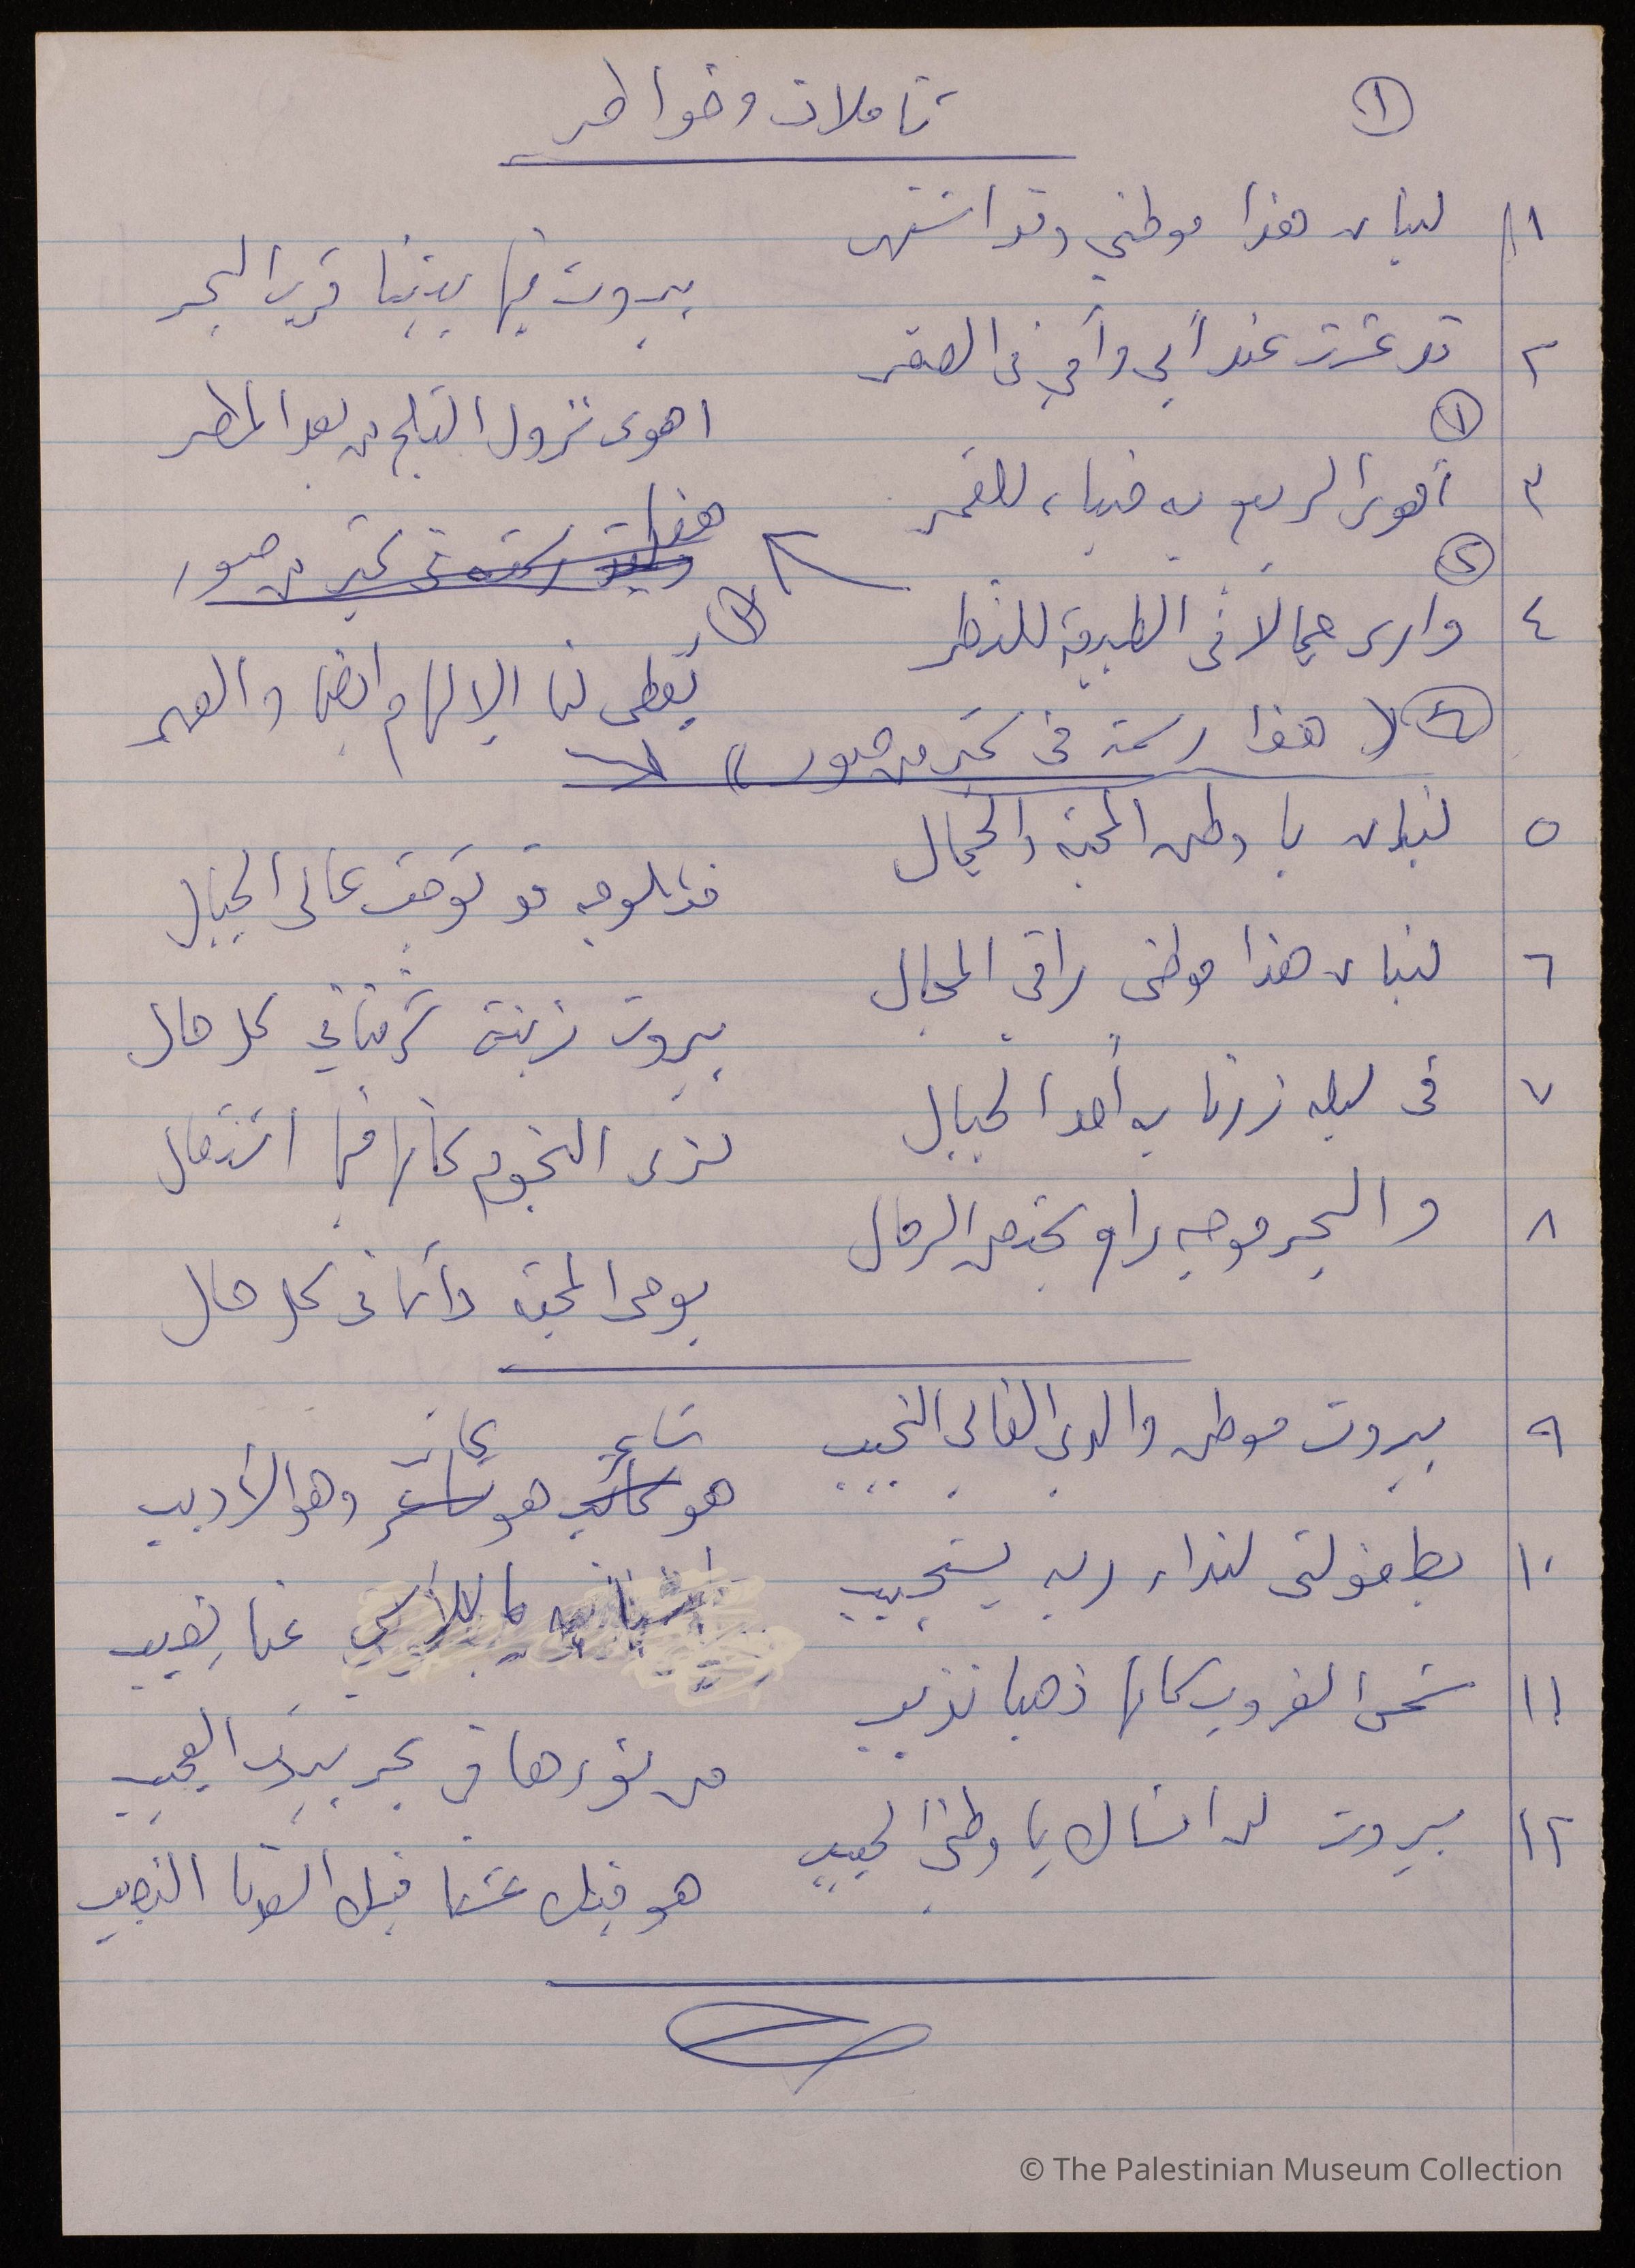 ١
تأملات وخواطر
١ لبنان هذا موطني وقد اشتهر
بيروت فيها بيتنا قرب البحر
٢ قد عشت عند أبي وأمي في الصغر
اهوى نزول الثلج من بعد المطر
١
٣ أهوى الربيع به ضياء للقمر
هذا رسمته في كثير من صور
٢
٤ وارى جمالا في الطبيعة للنظر
٣
يعطي لنا الإلهام ايضا والعبر
٤ (هذا رسمته في كثير من صور)
٥ لبنان يا وطن المحبة والجمال
فثلوجه قد توجت عالي الجبال
٦ لبنان هذا موطني راقي المجال
بيروت زينة شرقنا في كل حال
٧ في ليلة زرنا به أحد الجبال
لنرى النجوم كأنها فيها اشتعال
٨ والبحر موجه رام يحتضن الرمال
يوحي المحبة دائما في كل حال
٩ بيروت موطن والدي الغالي النجيب
شاعر كاتب
هو كاتب هو شاعر وهو الأديب
١٠ بطفولتي لنداء ربه يستجيب
عنا يغيب
١١ شمس الغروب كأنها ذهبا تذيب
من نورها في بحر بيروت العجيب
١٢ بيروت لن انساك يا وطني الحبيب
هو فيك عشنا فيك القينا النصيب
© The Palestinian Museum Collection